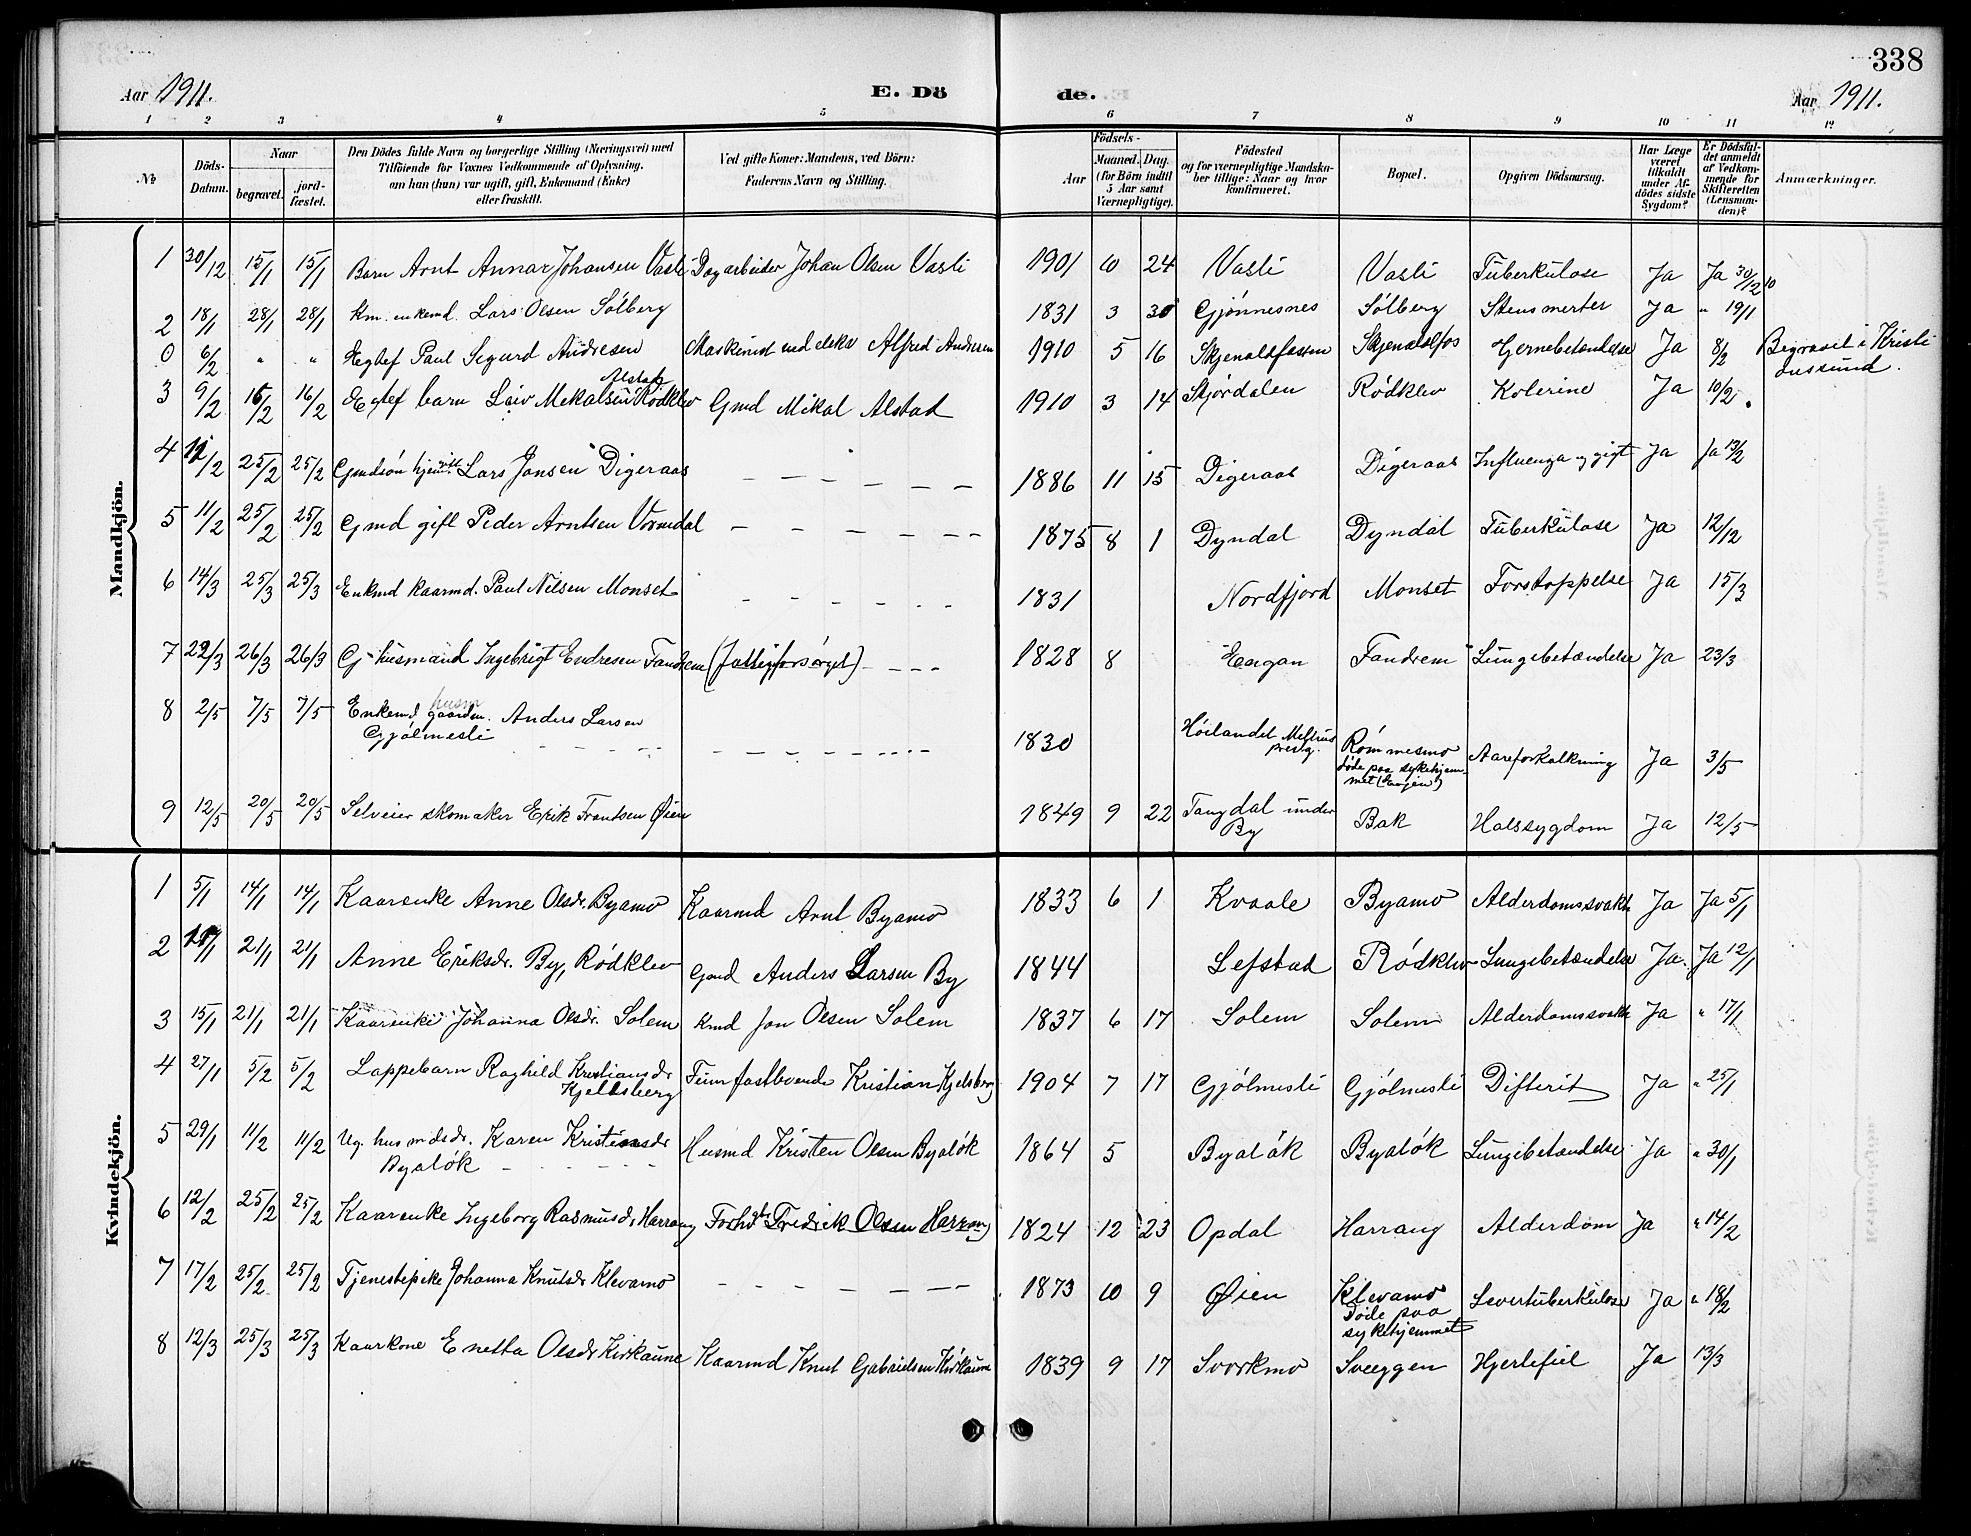 338
Aar 1911. E. Dö de. Aar 1911.
1 2 3 4 5 6 7 8 9 10 11 12
№
Döds-
Datum.
Naar
begravet.
jord-
fæstet.
Den Dödes fulde Navn og borgerlige Stilling (Næringsvei) med
Tilföiende for Voxnes Vedkommende af Oplysning,
om han (hun) var ugift, gift, Enkemand (Enke)
eller fraskilt.
Ved gifte Koner: Mandens, ved Börn:
Faderens Navn og Stilling.
Födsels-
Aar
Maaned.
Dag.
(for Börn indtil
5 Aar samt
Værnepligtige).
Födested
og for værnepligtige Mandska-
ber tillige: Naar og hvor
konfirmeret.
Bopæl.
Opgiven Dödsaarsag.
Har Læge
været
tilkaldt
under Af-
dödes sidste
Sygdom?
Er Dödsfal-
det anmeldt
af Vedkom-
mende for
Skifteretten
(Lensman-
den)?
Anmærkninger.
Mandkjön.
1 30/12 15/1 15/1 Barn Arnt Annar Johansen Vasli Dagarbeider Johan Olsen Vasli 1901 10 24 Vasli Vasli Tuberkulose Ja Ja 30/12 10
2 18/1 28/1 28/1 Km. enkemd. Lars Olsen Sølberg 1831 3 30 Gjønnesnes Sølberg Stensmerter Ja " 19/1
0 6/2 " " Egtef Paul Sigurd Andresen Maskinist ved elekr Alfred Andresen 1910 5 16 Skjenaldfossen Skjenaldfos Hjernebetændelse Ja 8/2 Begravet i Kristi-
ansund.
Alstad
3 9/2 16/2 16/2 Egtef barn Leiv Mekalsen Rødklev Gmd Mikal Alstad 1910 3 14 Stjørdalen Rødklev Kolerine Ja 10/2 "
4 11/2 25/2 25/2 Gmdsøn hjem Lars Jonsen Digeraas 1886 11 15 Digeraas Digeraas Influenza og gigt Ja Ja 13/2
5 11/2 25/2 25/2 Gmd gift Peder Arntsen Vormdal 1875 8 1 Dyndal Dyndal Tuberkulose Ja 12/12
6 14/3 25/3 25/3 Enkmd kaarmd. Paul Nilsen Monset 1831 Nordfjord Monset Forstoppelse Ja 15/3
7 22/3 26/3 26/3 G husmand Ingebrigt Endresen Fandrem (fattigforsørget) 1828 8 Eagan Fandrem Lungebetændelse Ja 23/3
husm
8 2/5 7/5 7/5 Enkemd gaardm. Anders Larsen
Gjølmesli 1830 Høilandet Melhus
prestg. Rømmesmo
døde paa sykehjem-
met Aareforkalkning Ja 3/5
9 12/5 20/5 20/5 Selveier skomaker Erik Frantsen Øien 1849 9 22 Tangdal under
By Bak Halssygdom Ja 12/5
Kvindekjön.
1 5/1 14/1 14/1 Kaarenke Anne Olsdr. Byamo Kaarmd Arnt Byamo 1833 6 1 Kvaale Byamo Alderdomssvakh Ja Ja 5/1
2 21/1 21/1 Anne Eriksdr. By, Rødklev Gmd Anders Larsen By 1844 Lefstad Rødklev Lungebetændelse Ja. Ja 12/1
3 15/1 21/1 21/1 Kaarenke Johanna Olsdr. Solem Kmd Jon Olsen Solem 1837 6 17 Solem Solem Alderdomssvakh Ja " 17/1
4 27/1 5/2 5/2 Lappebarn Raghild Kristiansdr
Kjeldsberg Finn fastboende Kristian Kjelsberg 1904 7 17 Gjølmesli Gjølmesli Difterit Ja " 25/1
5 29/1 11/2 11/2 Ug. husmdsdr. Karen Kristiansdr
Byaløk Husmd Kristen Olsen Byaløk 1864 5 Byaløk Byaløk Lungebetændelse Ja " 30/1
6 12/2 25/2 25/2 Kaarenke Ingeborg Rasmusdr Harrang Fredrik Olsen Harrang 1824 12 23 Opdal Harrang Alderdom Ja " 14/2
7 17/2 25/2 25/2 Tjenestepike Johanna Knutsdr Klevamo 1873 10 9 Øien Klevamo
Døde paa
sykehjemmet Levertuberkulose Ja " 18/2
8 12/3 25/3 25/3 Kaarkone Enetta Olsdr Kirkaune Kaarmd Knut Gabrielsen Kirkaune 1839 9 17 Svorkmo Sveeggen Hjertefeil Ja 13/3